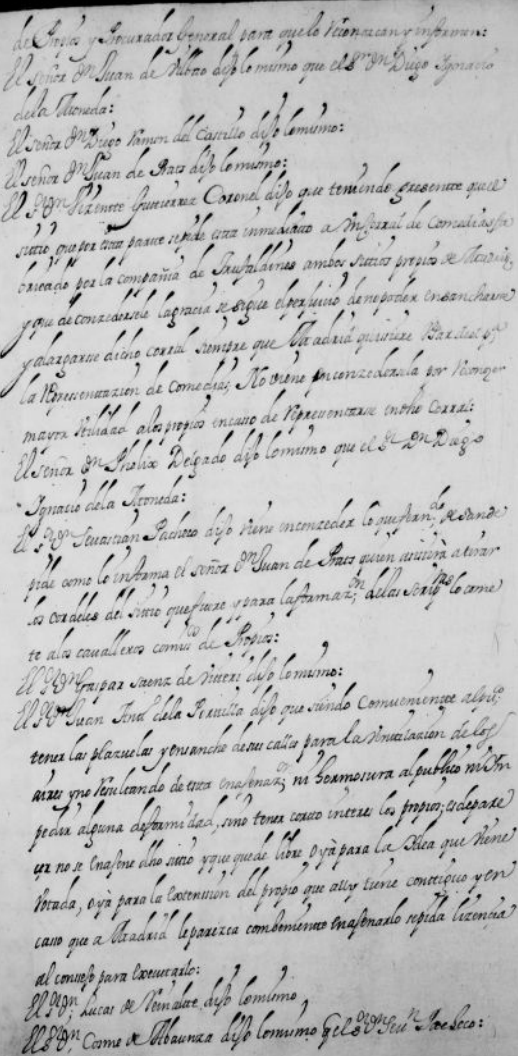 de Propios y Procurador General para que lo reconozcan y informen:
El señor Dn Juan de Vilbao dijo lo mismo que el Sr Dn Diego Ignacio
de la Moneda:
El señor Dn Diego Ramon del Castillo dijo lo mismo:
El señor Dn Juan de Prats dijo lo mismo:
El Sr Dn Vizente Gutierrez Coronel dijo que teniendo presente que el
sittio que por esta parte se pide esta inmediato a un Corral de Comedias fa
bricado por la compañia de Trufaldines ambos sitios propios de Madrid,
y que de conzedersele la gracia se sigue el perjuicio de no poder ensancharse
y alargarse dicho corral siempre que Madrid quisiere usar de el pa
la Representazion de Comedias; No viene en conzedersela por reconozer
mayor utilidad a los propios en caso de representarse en dho Corral:
El señor Dn Phelix Delgado dijo lo mismo que el Sr Dn Diego
Ignacio de la Moneda:
El Sr Dn Sevastian Pacheco dijo viene en conzeder lo que Fernando de Sande
pide como lo informa el señor Dn Juan de Prats quien asistira a tirar
los cordeles del sitio que fuere y para la formazn de las scripras lo come
te a los cavalleros comisos de Propios:
El Sr Dn Gaspar Saenz de Viteri dijo lo mismo:
El Sr Dn Juan Antto de la Portilla dijo que siendo Combeniente al puco
tener las plazuelas y ensanche de sus calles para la ventilacion de los
aires y no resultando de esta enajenazn ni hermosura al publico ni im
pedir alguna deformidad, sino tener corto interes los propios; es de pare
cer no se enajene dho sitio y que quede libre o ya para la Idea que viene
votada, o ya para la extension del propio que alli tiene contiguo y en
caso que a Madrid le parezca combeniente enajenarlo se pida lizencia
al consejo para executarlo:
El Sr Dn Lucas de Reinalte dijo lo mismo
El Sr Dn Cosme de Abaunza dijo lo mismo q el Sr Dn Sevn Pacheco: